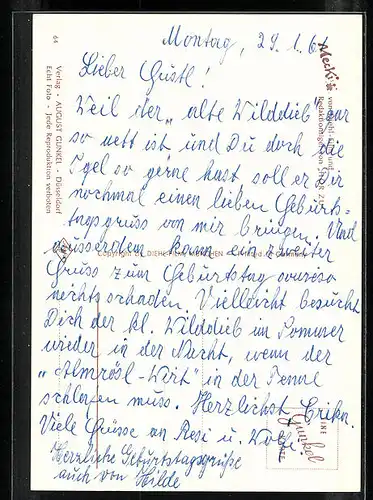 Montag, 24.1.64
Lieber Gustl!
Weil der "alte Wilddieb" gar
so nett ist und Du doch die
Igel so gerne hast soll er Dir
nochmal einen lieben Geburts-
tagsgruss von mir bringen. Und
ausserdem kann ein zweiter
Gruss zum Geburtstag
nichts schaden. Vielleicht besucht
Dich der kl. Wilddieb im Sommer
wieder in der Nacht, wenn der
"Almrösl-Wirt" in der Tenne
schlafen muss. Herzlichst Erika.
Viele Grüsse an Resi u.
Herzliche Geburtstagsgrüße
auch von Hilde
64
Verlag · AUGUST GUNKEL · Düsseldorf
Echt Foto · Jede Reproduktion verboten
Mecki
Redaktionsigel von
Copyright by DIEHL-FILM, MÜNCHEN
Printed in Germany
Gunkel